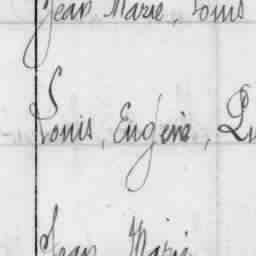 Jean Marie, Louis
Louis, Eugène,
Jean Marie